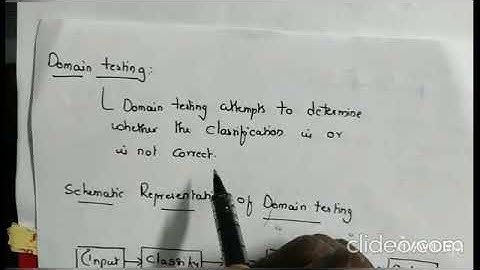 Domain testing:
Domain testing attempts to determine
whether the classification is or
is not correct.
Schematic Representation of Domain testing
Input
Classify
clideo.com